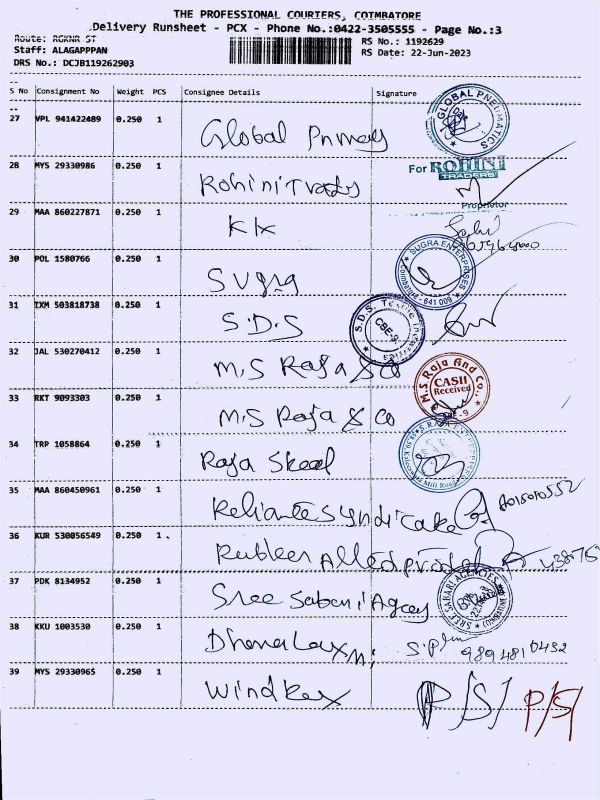 THE PROFESSIONAL COURIERS, COIMBATORE
Delivery Runsheet - PCX - Phone No.:0422-3505555 - Page No.:3
Route: RGKNR ST
Staff: ALAGAPPPAN
DRS No.: DCJB119262903
RS No.: 1192629
RS Date: 22-Jun-2023
S No Consignment No Weight PCS Consignee Details Signature
27 VPL 941422489 0.250 1 Global GLOBAL PNEUMATICS
28 MYS 29330986 0.250 1 Rohini For ROHINI
TRADERS
Proprietor
29 MAA 860227871 0.250 1
30 POL 1580766 0.250 1 Sugra SUGRA ENTERPRISES
Coimbatore - 641 009
31 IXM 503818738 0.250 1 S.D.S S.D.S. Textile
CBE-9
32 JAL 530270412 0.250 1 M.S Raja & Co M.S Raja And Co.,
CASH
Received
33 RKT 9093303 0.250 1 M.S Raja & Co
34 TRP 1058864 0.250 1 Raja
Mill Road
35 MAA 860450961 0.250 1 Reliance Syndicate
36 KUR 530056549 0.250 1
37 PDK 8134952 0.250 1 Sree Sabari Agency SREE SABARI AGENCIES
38 KKU 1003530 0.250 1 Dhana Laxmi 9894810432
39 MYS 29330965 0.250 1 P/S/ P/S/